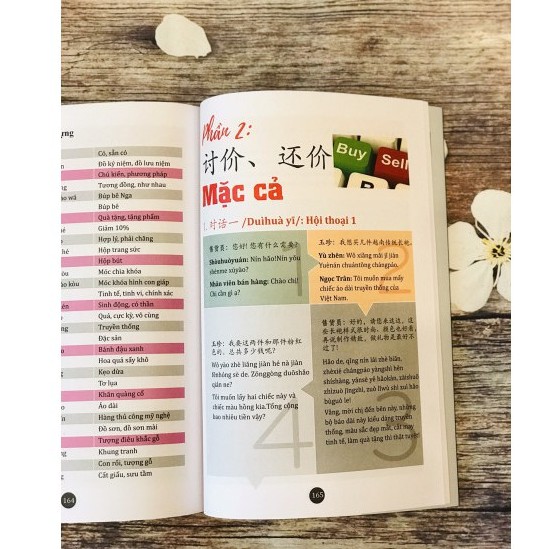 ựng
Có, sẵn có
Đồ kỷ niệm, đồ lưu niệm
Chủ kiến, phương pháp
Tương đồng, như nhau
Búp bê Nga
Búp bê
Quà tặng, tặng phẩm
Giảm 10%
Hợp lý, phải chăng
Hộp trang sức
Hộp bút
Móc chìa khóa
Móc khóa hình con giáp
Tinh tế, tinh vi, chính xác
Sinh động, có thần
Quá, cực kỳ, vô cùng
Truyền thống
Đặc sản
Bánh đậu xanh
Hoa quả sấy khô
Kẹo dừa
Tơ lụa
Khăn quàng cổ
Áo dài
Hàng thủ công mỹ nghệ
Đồ sơn, đồ sơn mài
Tượng điêu khắc gỗ
Khung tranh
Con rối, tượng gỗ
Cất giấu, sưu tầm
164
Phần 2:
讨价、还价
Mặc cả
Buy
Sell
1. 对话一 /Duìhuà yī/: Hội thoại 1
1
售货员: 您好! 您有什么需要?
Shòuhuòyuán: Nín hǎo! Nín yǒu
shénme xūyào?
Nhân viên bán hàng: Chào chị!
Chị cần gì ạ?
2
玉珍: 我想买几件越南传统长袍。
Yù zhēn: Wǒ xiǎng mǎi jǐ jiàn
Yuènán chuántǒng chángpáo.
Ngọc Trân: Tôi muốn mua mấy
chiếc áo dài truyền thống của
Việt Nam.
3
售货员: 好的, 请您来这边, 这
些长袍样式很时尚, 颜色也好看
再说制作精致, 做礼物是最好不
过了!
Hǎo de, qǐng nín lái zhè biān,
zhèxiē chángpáo yàngshì hěn
shíshàng, yánsè yě hǎokàn, zàishuō
zhìzuò jīngzhì, zuò lǐwù shì zuì hǎo
bùguò le!
Vâng, mời chị đến bên này, những
bộ áo dài này kiểu dáng truyền
thống, màu sắc đẹp mắt, cắt may
tinh tế, làm quà tặng thì thật tuyệt!
4
玉珍: 我要这两件和那件粉红
色的, 总共多少钱呢?
Wǒ yào zhè liǎng jiàn hé nà jiàn
fěnhóng sè de. Zǒnggòng duōshǎo
qián ne?
Tôi muốn lấy hai chiếc này và
chiếc màu hồng kia. Tổng cộng
bao nhiêu tiền vậy?
165